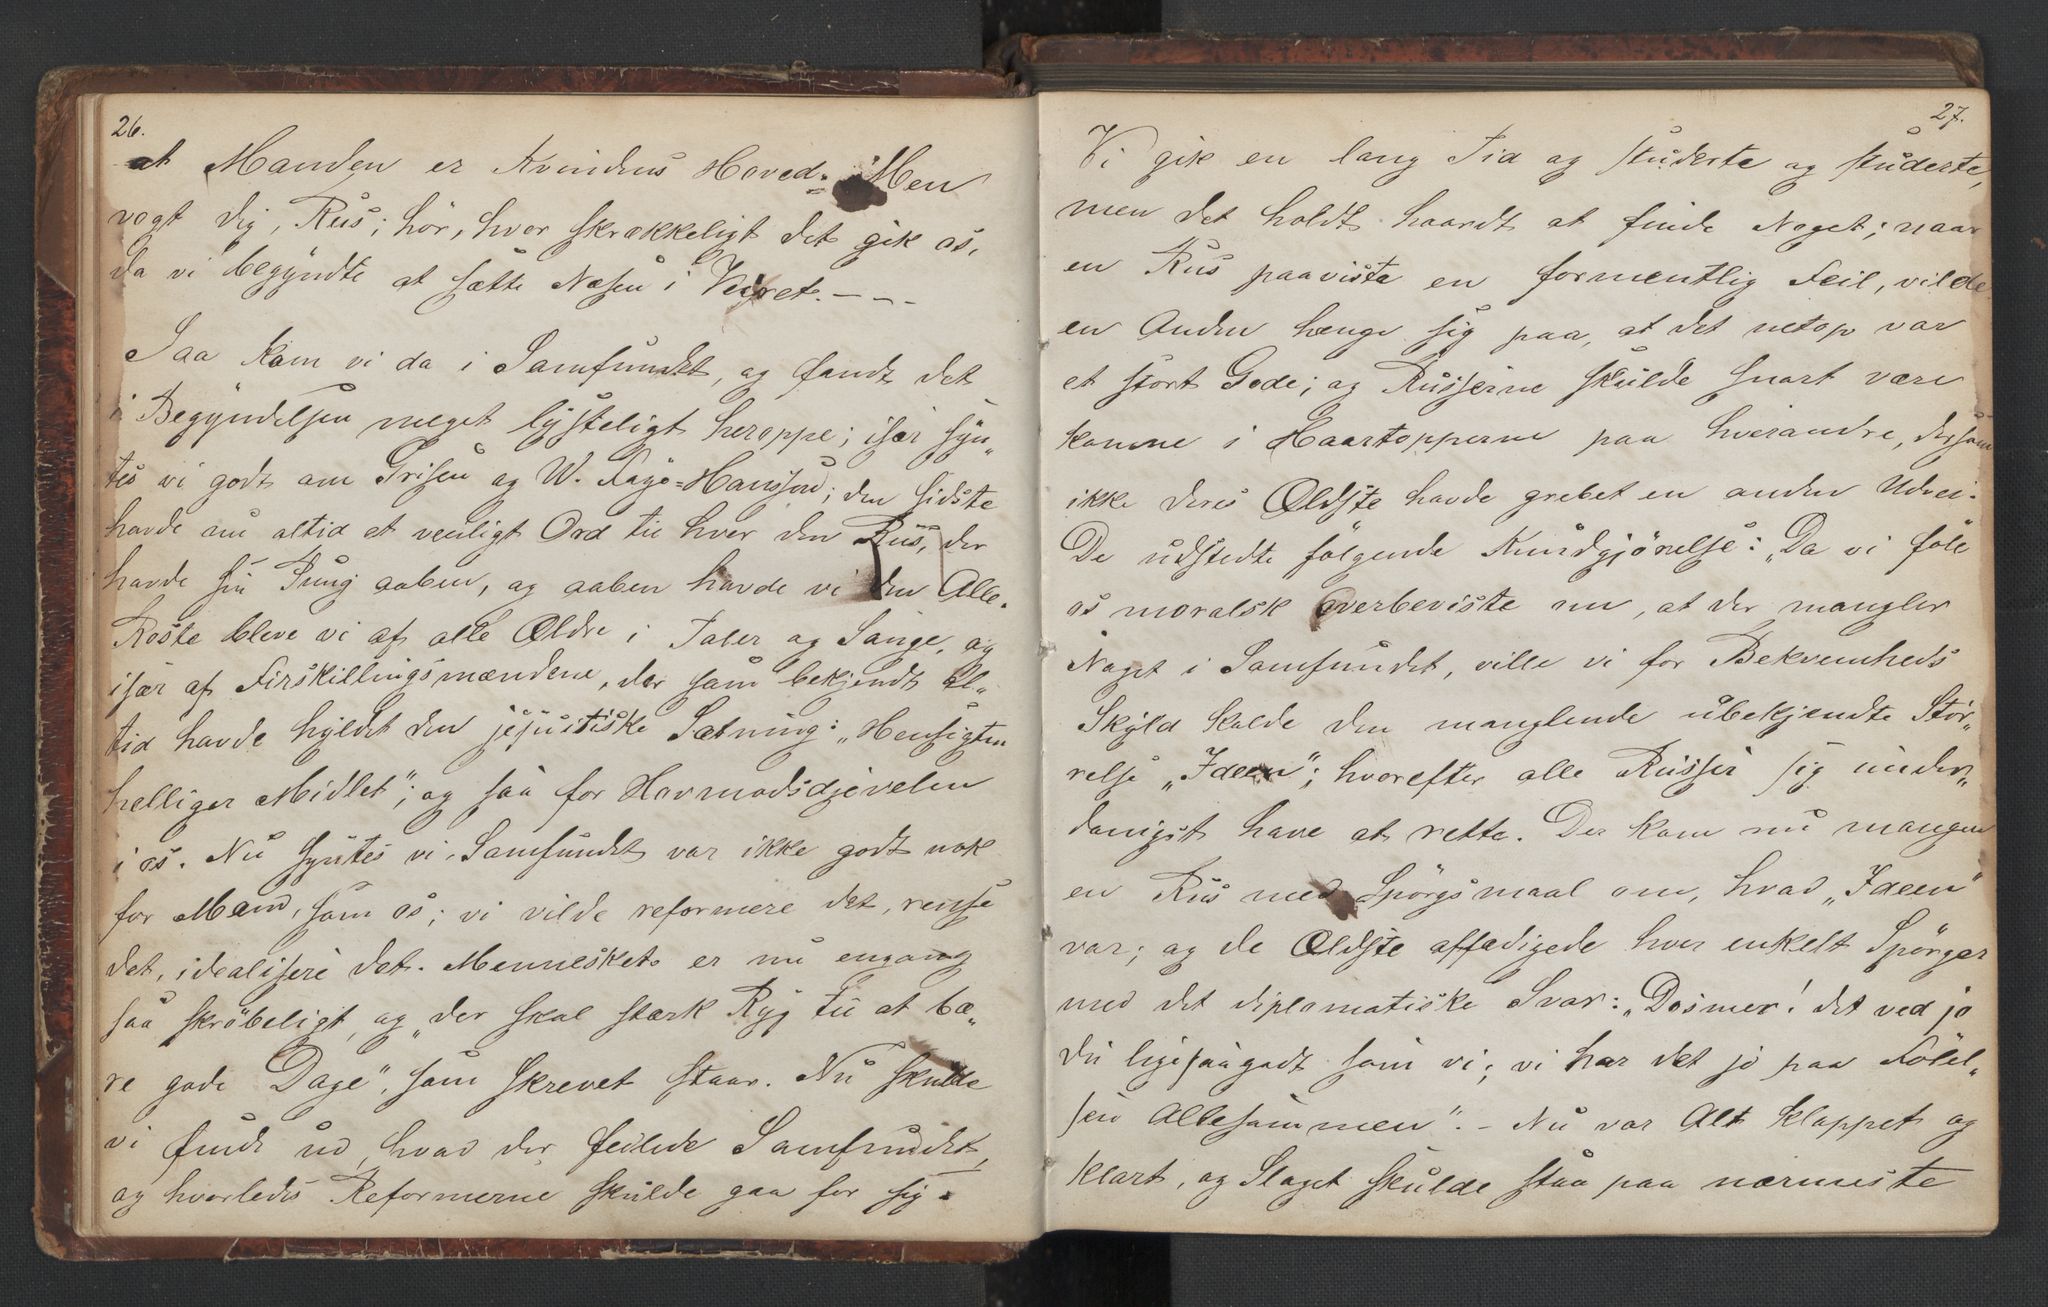 26.
at Manden er Kvindens Hoved. Men
vogt dig, Rus; hör, hvor skrækkeligt det gik os,
da vi begyndte at sætte Næsen i Veiret. - - -
Saa kom vi da i Samfundet, og fandt det
i Begyndelsen meget lysteligt heroppe; især syn„
tes vi godt om Grisen og W. Faye=Hanssen; den sidste
havde nu altid et venligt Ord til hver den Rus, der
havde sin Pung aaben, og aaben havde vi den Alle.
Roste bleve vi af alle Ældre i Taler og Sange, og
især af Firskillingsmændene, der som bekjendt al„
tid havde hyldet den jesuitiske Sætning: „Hensigten
helliger Midlet"; og saa for Hovmodsdjevelen
i os. Nu syntes vi, Samfundet var ikke godt nok
for Mænd, som os; vi vilde reformere det, rense
det, idealisere det. Mennesket er nu engang
saa skröbeligt, og „der skal stærk Ryg til at bæ„
re gode Dage", som skrevet staar. Nu skulde
vi finde ud, hvad der feilede Samfundet,
og hvorledes Reformerne skulde gaa for sig.
27.
Vi gik en lang Tid og studerte og studerte,
men det holdt haardt at finde Noget; naar
en Rus paaviste en formentlig Feil, vilde
en Anden hænge sig paa, at det netop var
et stort Gode; og Russerne skulde snart være
komne i Haartopperne paa hverandre, dersom
ikke deres Ældste havde grebet en anden Udvei.
De udstedte fölgende Kundgjörelse: „Da vi föle
os moralsk overbeviste om, at der mangler
Noget i Samfundet, ville vi for Bekvemheds
Skyld kalde den manglende ubekjendte Stör„
relse „Ideen"; hvorefter alle Russer sig under„
danigst have at rette. Der kom nu mangen
en Rus med Spörgsmaal om, hvad „Ideen"
var; og de Ældste affædigede hver enkelt Spörger
med det diplomatiske Svar: „Dosmer! det ved jo
du ligesaagodt som vi; vi har det jo paa Fölel„
sen Allesammen". - Nu var Alt klappet og
klart, og Slaget skulde staa paa nærmeste